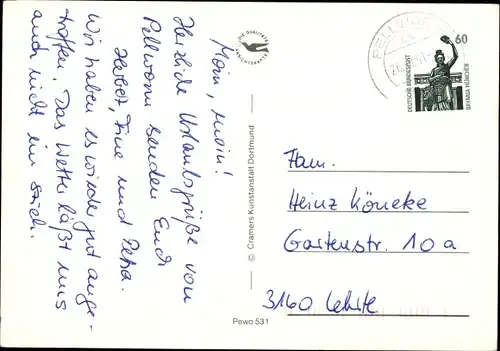 Moin, moin!
Herzliche Urlaubsgrüße von
Pellworm senden Euch
Herbert, Tine und Petra.
Wir haben es wieder gut ange-
troffen. Das Wetter läßt uns
auch nicht im Stich.
© Cramers Kunstanstalt Dortmund
Pewo 531
PELLWORM
60
DEUTSCHE BUNDESPOST
BAVARIA MÜNCHEN
Fam.
Heinz Köneke
Gartenstr. 10a
3160 Lehrte